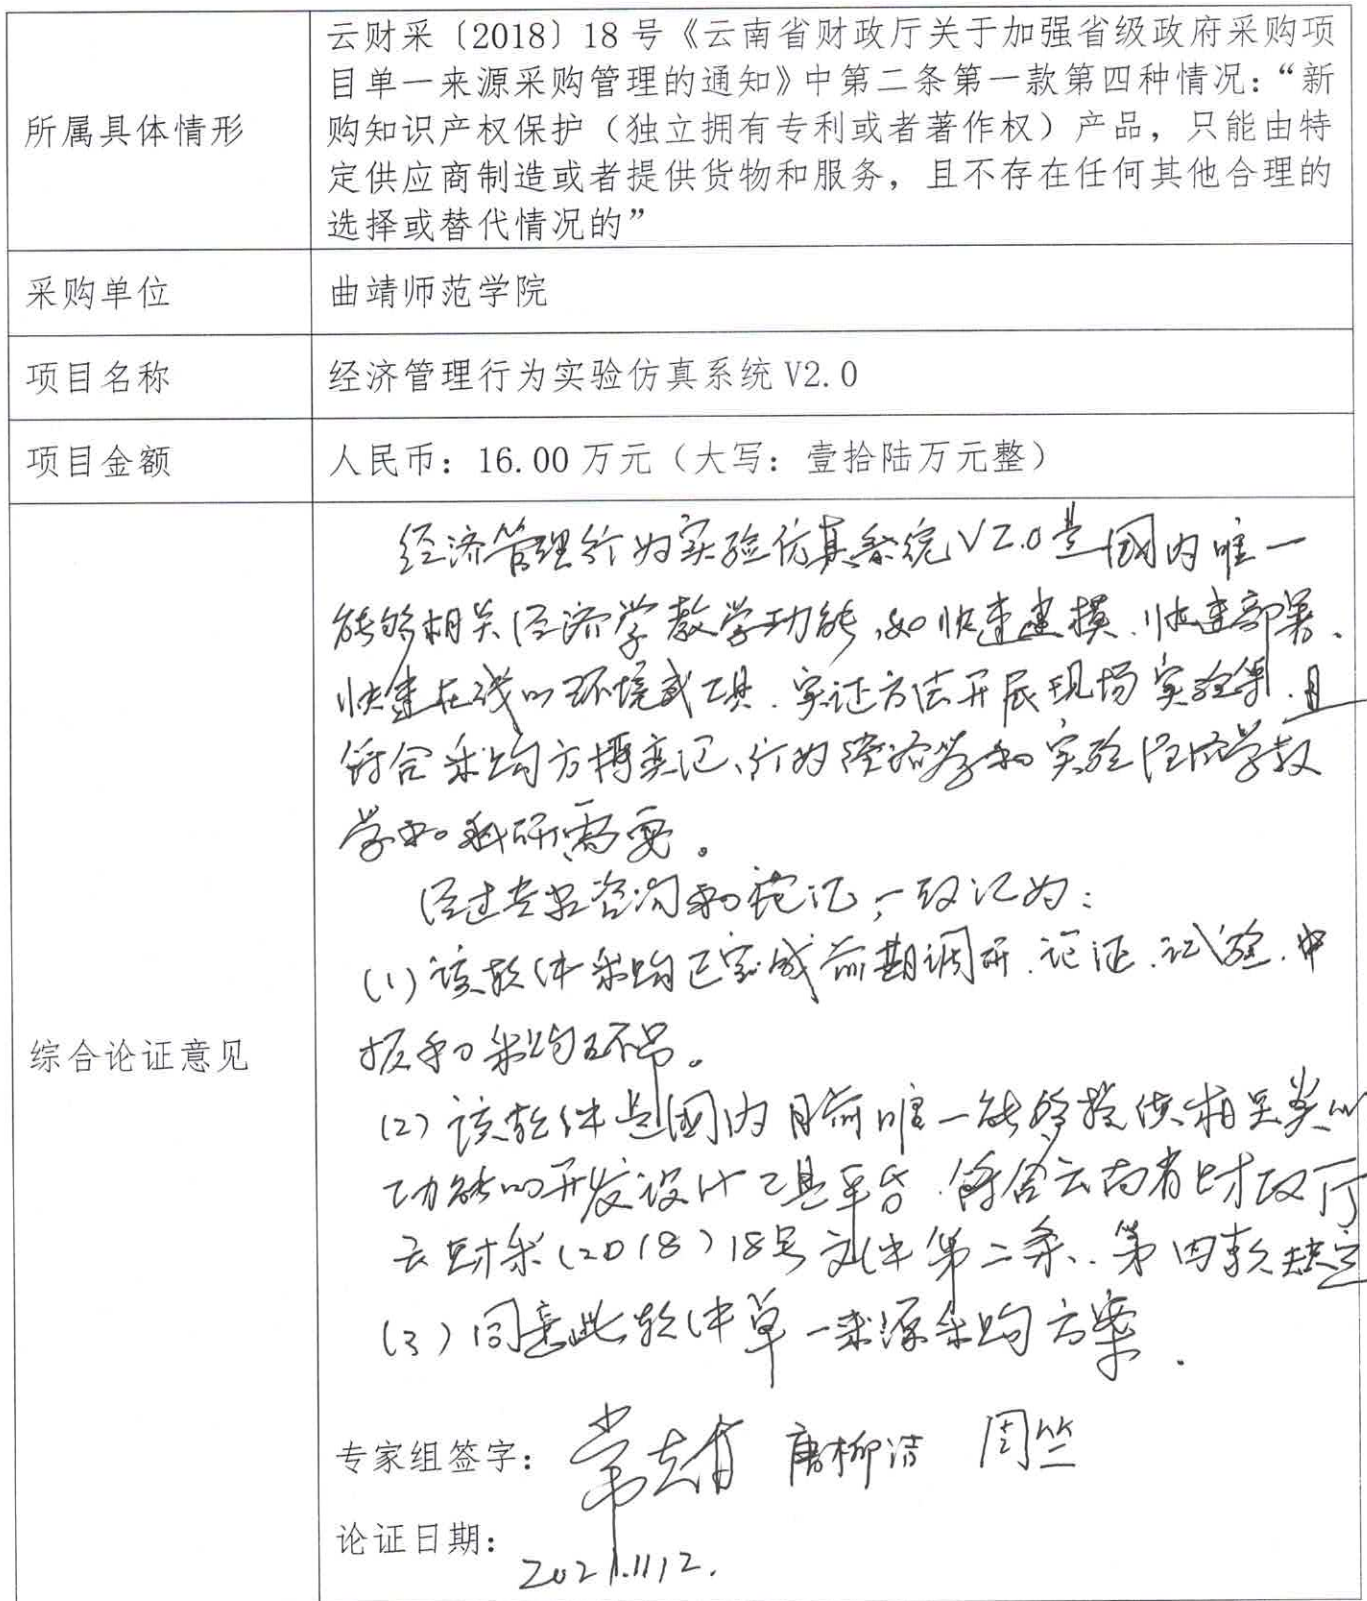 所属具体情形
云财采〔2018〕18号《云南省财政厅关于加强省级政府采购项
目单一来源采购管理的通知》中第二条第一款第四种情况：“新
购知识产权保护（独立拥有专利或者著作权）产品，只能由特
定供应商制造或者提供货物和服务，且不存在任何其他合理的
选择或替代情况的”
采购单位
曲靖师范学院
项目名称
经济管理行为实验仿真系统V2.0
项目金额
人民币：16.00万元（大写：壹拾陆万元整）
综合论证意见
经济管理行为实验仿真系统V2.0是国内唯一
能够相关经济学教学功能，如快速建模、快速部署、
快速在线的环境或工具、实证方法开展现场实验等，且
符合采购方博弈论、行为经济学和实验经济学教
学和科研需要。
经过专家咨询和论证，一致认为：
(1)该软件采购已完成前期调研、论证、试验、申
报和采购环节。
(2)该软件是国内目前唯一能够提供相关类似
功能的开发设计工具平台，符合云南省财政厅
云财采(2018)18号文件第二条、第四款规定
(3)同意此软件单一来源采购方案.
专家组签字： 唐柳洁 周竺
论证日期：
2021.11.12.